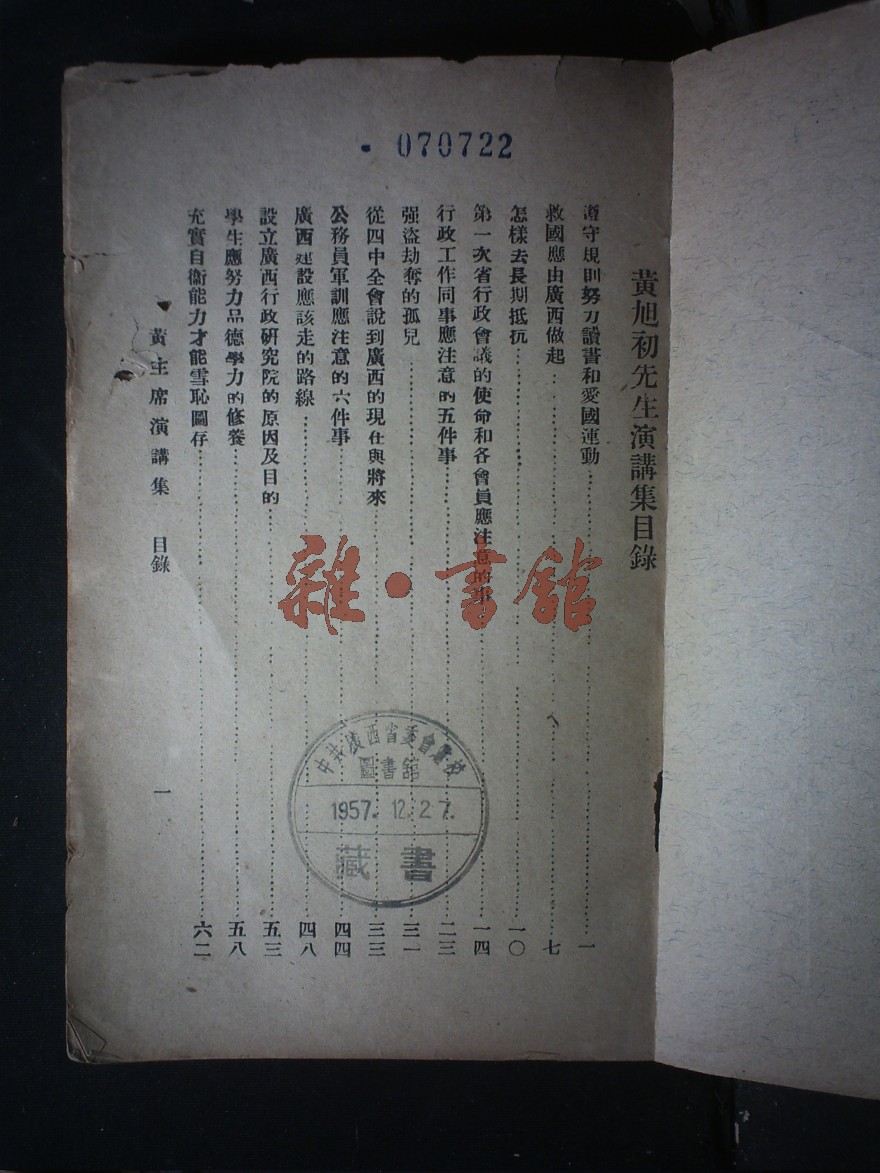 070722
黃旭初先生演講集目錄
遵守規則努力讀書和愛國運動 一
救國應由廣西做起 七
怎樣去長期抵抗 一〇
第一次省行政會議的使命和各會員應注意的事 一四
行政工作同事應注意的五件事 二三
强盜劫奪的孤兒 三一
從四中全會說到廣西的現在與將來 三三
公務員軍訓應注意的六件事 四四
廣西建設應該走的路線 四八
設立廣西行政研究院的原因及目的 五三
學生應努力品德學力的修養 五八
充實自衞能力才能雪恥圖存 六二
黃主席演講集 目錄
一
雜·書館
中共廣西省委會黨校
圖書館
1957. 12. 27.
藏書